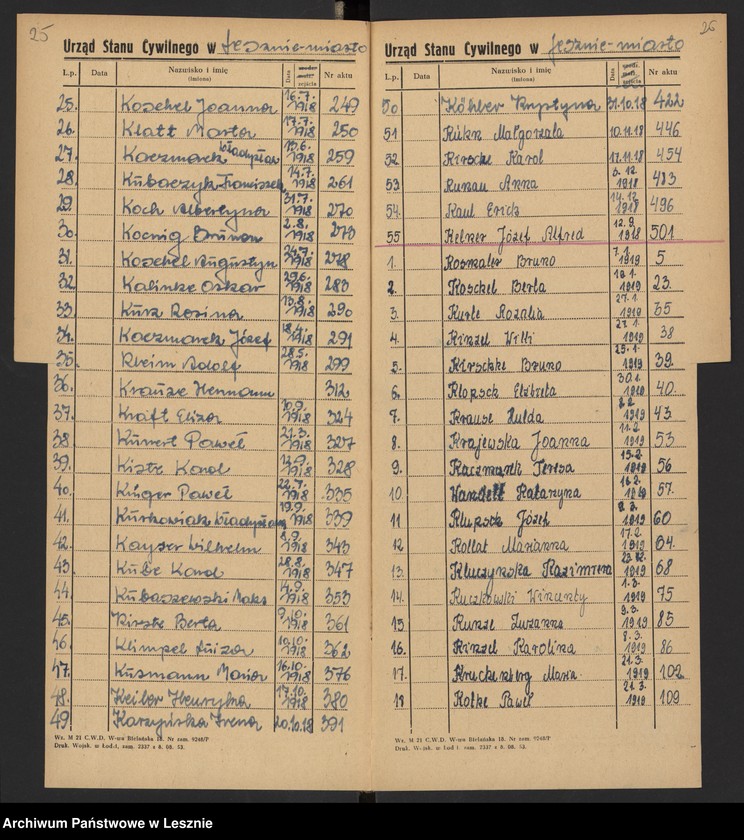 25
Urząd Stanu Cywilnego w Lesznie-miasto
L.p. Data Nazwisko i imię (imiona) Data zejścia Nr aktu
25. Koschel Joanna 16.7. 1918 249
26. Klatt Marta 17.7. 1918 250
27. Kaczmarek Władysław 15.6. 1918 259
28. Kubaczyk Franciszek 14.7. 1918 261
29. Koch Albertyna 31.7. 1918 270
30. Koenig Brunon 2.8. 1918 273
31. Koschel Augustyn 24.7. 1918 278
32. Kalinke Oskar 29.6. 1918 283
33. Kurz Rozina 13.8. 1918 290
34. Kaczmarek Józef 1918 291
35. Adolf 28.5. 1918 299
36. Krause Hermann 312
37. Kraft Eliza 1918 324
38 Kunert Paweł 21.3. 1918 327
39. Karol 1918 328
40. Krüger Paweł 22.7. 1918 335
41. Kurkowiak Władysława 19.9. 1918 339
42. Kayser Wilhelm 8.9. 1918 343
43. Kube Karol 28.8. 1918 347
44. Kubaszewski Maks 1918 353
45. Kirste Berta 1918 361
46. Klimpel Luiza 10.10. 1918 362
47. Kusmann Maria 16.10. 1918 376
48. Keiler Henryka 17.10. 1918 380
49. Karzyńska Irena 20.10.18 391
Wz. M 21 C.W.D. W-wa Bielańska 18. Nr zam. 9248/P
Druk. Wojsk. w Łodzi, zam. 2337 z 8. 08. 53.
26
Urząd Stanu Cywilnego w Lesznie-miasto
L.p. Data Nazwisko i imię (imiona) Data zejścia Nr aktu
50 Köhler Krystyna 31.10.18 422
51 Małgorzata 10.11.18 446
52 Kirschke Karol 17.11.18 454
53. Kunau Anna 6.12. 1918 483
54. Kaul Erich 14.12. 1918 496
55 Kelner Józef Alfred 12.9. 1918 501
1. Kosmaler Bruno 7.1. 1919 5
2. Koschel Berta 18.1. 1919 23.
3. Kurte Rozalia 27.1. 1919 35
4. Kinzel Willi 27.1. 1919 38
5. Kirschke Bruno 25.1. 1919 39.
6. Klopsch Elżbieta 30.1. 1919 40.
7. Krause Hulda 2.2. 1919 43
8. Krajewska Joanna 11.2. 1919 53
9. Kaczmarek Teresa 15.2. 1919 56
10. Katarzyna 16.2. 1919 57.
11 Klupsch Józef 8.2. 1919 60
12 Kollat Marianna 17.2. 1919 64.
13. Kluczynska Kazimiera 1919 68
14. Kuczkowski Wincenty 1.3. 1919 75
15 Kunze Zuzanna 9.3. 1919 85
16. Kinzel Karolina 8.3. 1919 86
17. Kruckenberg Maria 21.3. 1919 102
18 Kotke Paweł 21.3. 1919 109
Wz. M 21 C.W.D. W-wa Bielańska 18. Nr zam. 9248/P
Druk. Wojsk. w Łodzi, zam. 2337 z 8. 08. 53.
Archiwum Państwowe w Lesznie